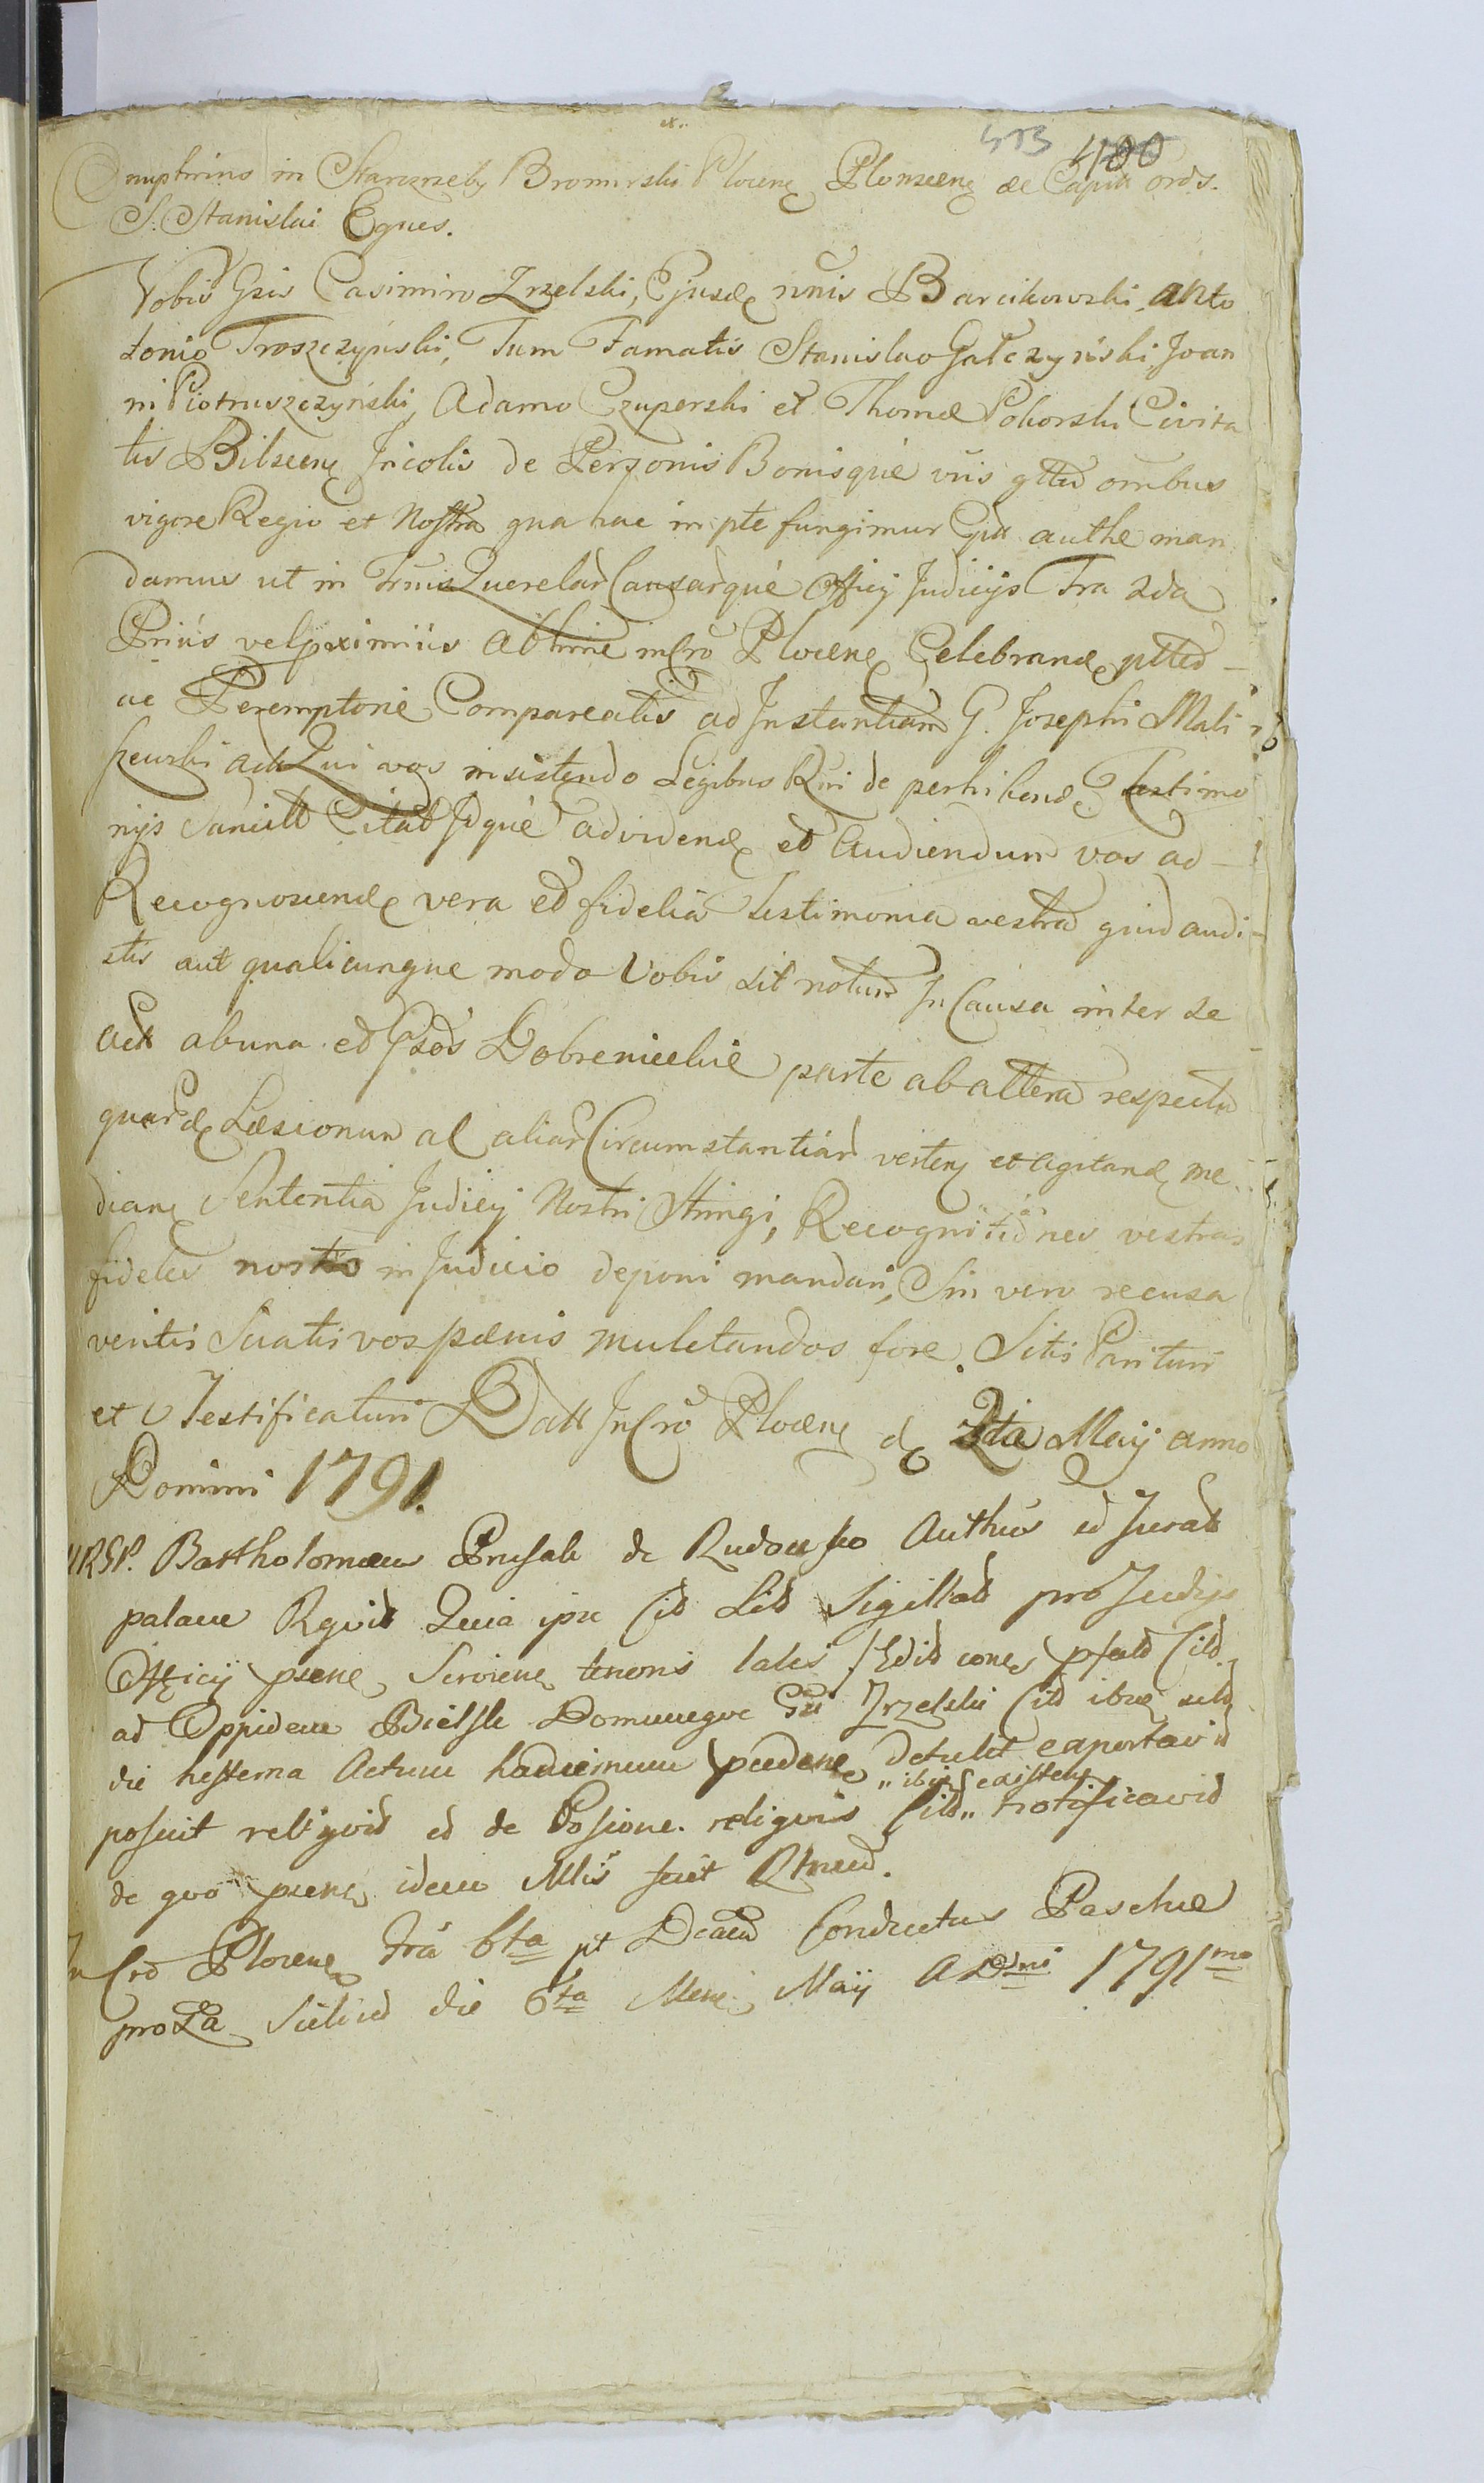 413 400
Onuphrius in Starorzeby Bromirski Plocen Plonscen ae Capit ords.
S. Stanislai Eques.
Vobis Gsis Casimiro Zrzelski, Ejusd nnis Barcikowski, Anto
tonio Troszczyński, Tum Famatis Stanislao Gałczyński, Joan
ni Piotruszczyński, Adamo Czuperski et Thomæ Pokorski Civita
tis Bilscen Incolis de Personis Bonisque vris gttd ombus
vigore Regia et Nostra qua hac in pte fungimur authe man
damus ut in Querelar Causarque Officy Judicijs Fra 2da
Prius vel pximius abhinc in Cro Plocen Celebrand pttd
ac Peremptorie Compareatis ad Instantiam G. Josephi Mali
szewski Act Qui vos insistendo Legibus Rni de perhibend Testimo
nijs Sancitt Citat Idque advidend et Audiendum vos ad
Recognoscend vera et fidelia Testimonia vestra quid audi
stis aut qualicunque modo Vobis sit notum In Causa inter se
Act abuna et Gsos Dobrenieckie parte ab altera respectu
quard Læsionum al aliar Circumstantiar verten et agitand me
dian Sententia Judicy Nostri Stringi, Recognitiones vestras
fideles nostro in Judicio deponi mandari, Sin vero recusa
veritis Suatis vos pænis mulctandos fore. Sitis Parituri
et Testificaturi Datt In Cro Plocen d 2da Maij anno
Domini 1791.
URSP. Bartholomæus Prusak de Rudowsko Authus et Jurat
palam Rgvit Quia ipse Cit Lit Sigillat pro Judijs
Officij psen Servien tenoris talis Edit con pfat Citt
ad Oppidum Bielsk Domumque Gsi Zrzelski Citt ibid
die hesterna Actum hancimum pceden detulit exportavit
posuit reliqvit et de Posione reliquis Citt „ibid existen„ notificavit
de quo psens idem Mlis fecit Rtned.
In Cro Plocen fra 6ta pt Dcam Conductus Paschæ
pro La die 6ta Mens Maij A Dni 1791mo